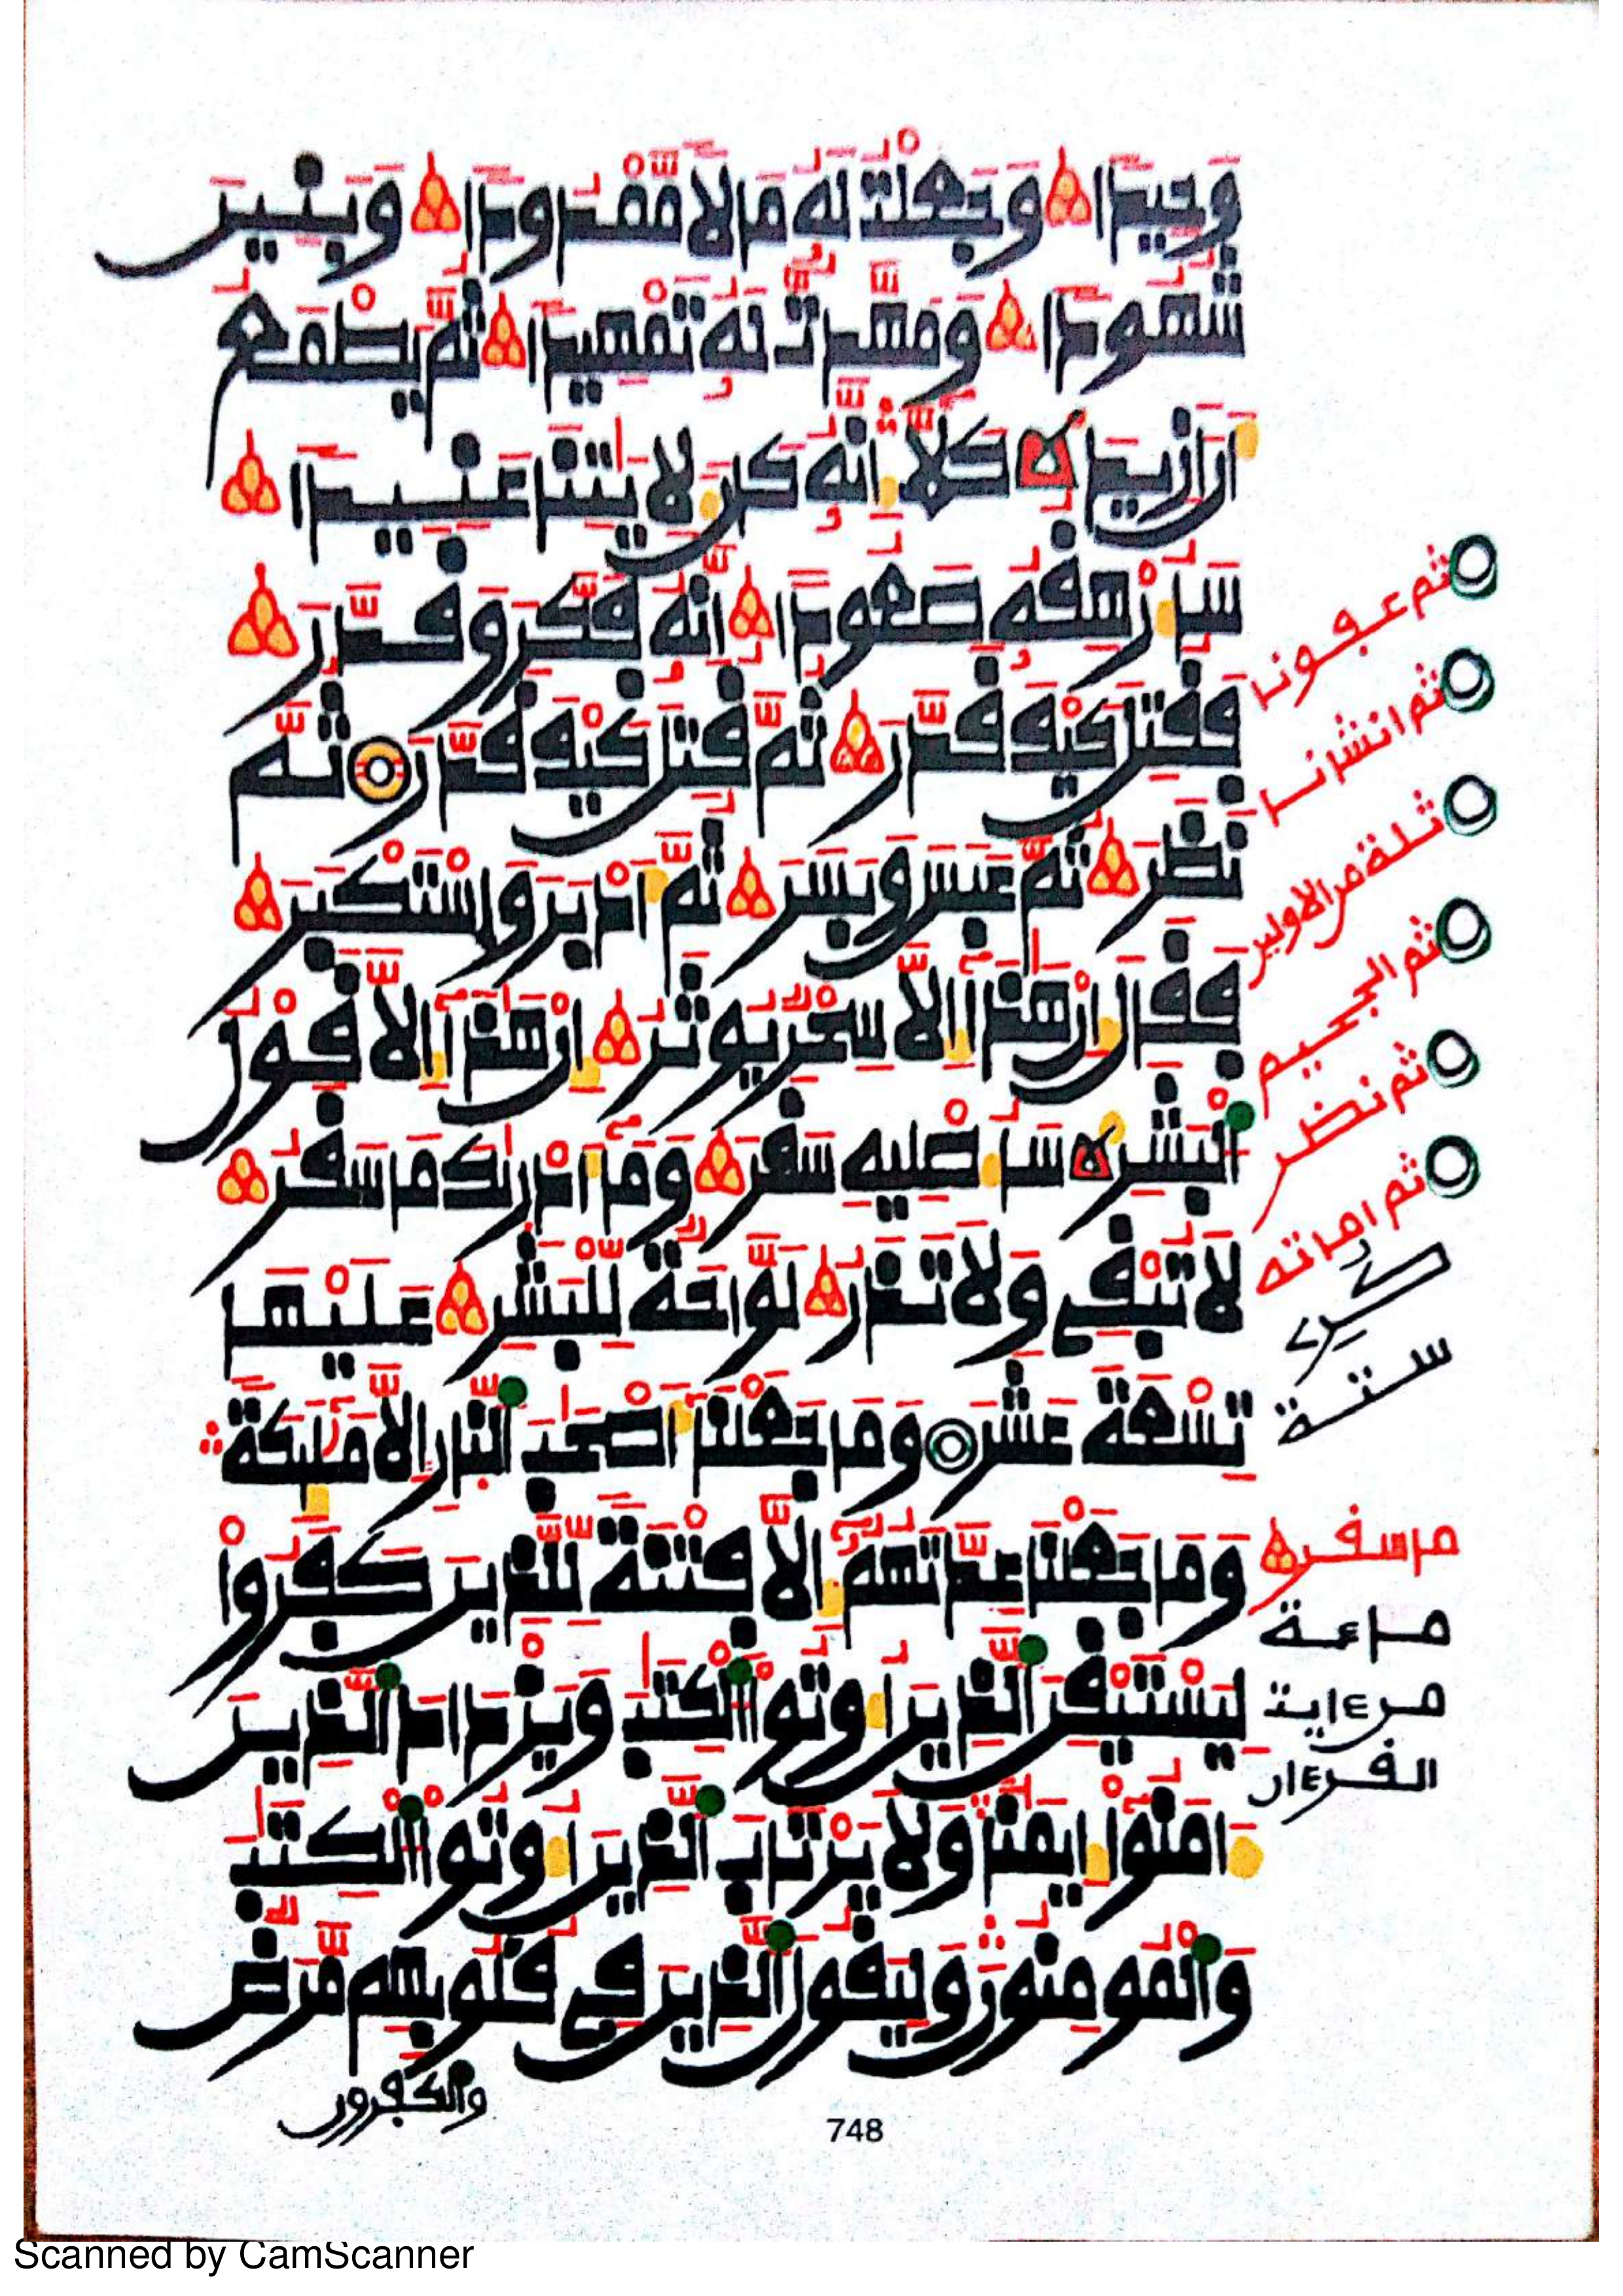 وَحِيدًا وَجَعَلْتُ لَهُ مَالًا مَّمْدُودًا وَبَنِينَ
شُهُودًا وَمَهَّدتُّ لَهُ تَمْهِيدًا ثُمَّ يَطْمَعُ
أَنْ أَزِيدَ كَلَّا إِنَّهُ كَانَ لِأَيَتِنَا عَنِيدًا
سَأُرْهِفُهُ صَعُودًا إِنَّهُ فَكَّرَ وَقَدَّرَ
فَقُتِلَ كَيْفَ قَدَّرَ ثُمَّ قُتِلَ كَيْفَ قَدَّرَ ثُمَّ
نَظَرَ ثُمَّ عَبَسَ وَبَسَرَ ثُمَّ أَدْبَرَ وَاسْتَكْبَرَ
فَقَالَ إِنْ هَذَا إِلَّا سِحْرٌ يُوثَرُ إِنْ هَذَا إِلَّا قَوْلُ
الْبَشَرِ سَأُصْلِيهِ سَقَرَ وَمَا أَدْرَىكَ مَا سَقَرُ
لَا تُبْقِي وَلَا تَذَرُ لَوَّاحَةٌ لِّلْبَشَرِ عَلَيْهَا
تِسْعَةَ عَشَرَ وَمَا جَعَلْنَا أَصْحَبَ النَّارِ إِلَّا مَلَئِكَةً
وَمَا جَعَلْنَا عِدَّتَهُمُ إِلَّا فِتْنَةً لِّلَّذِينَ كَفَرُواْ
لِيَسْتَيْقِنَ الَّذِينَ أُوتُواْ الْكِتَبَ وَيَزْدَادَ الَّذِينَ
ءَامَنُواْ إِيمَنًا وَلَا يَرْتَابَ الَّذِينَ أُوتُواْ الْكِتَبَ
وَالْمُومِنُونَ وَلِيَقُولَ الَّذِينَ فِي قُلُوبِهِم مَّرَضٌ
والكفرون
ثم عفونا
ثم انشانا
ثلة من الاولين
ثم الجحيم
ثم نظر
ثم اماته
ستة
ما سقر
ماعة
من ءاية
القرءان
748
Scanned by CamScanner